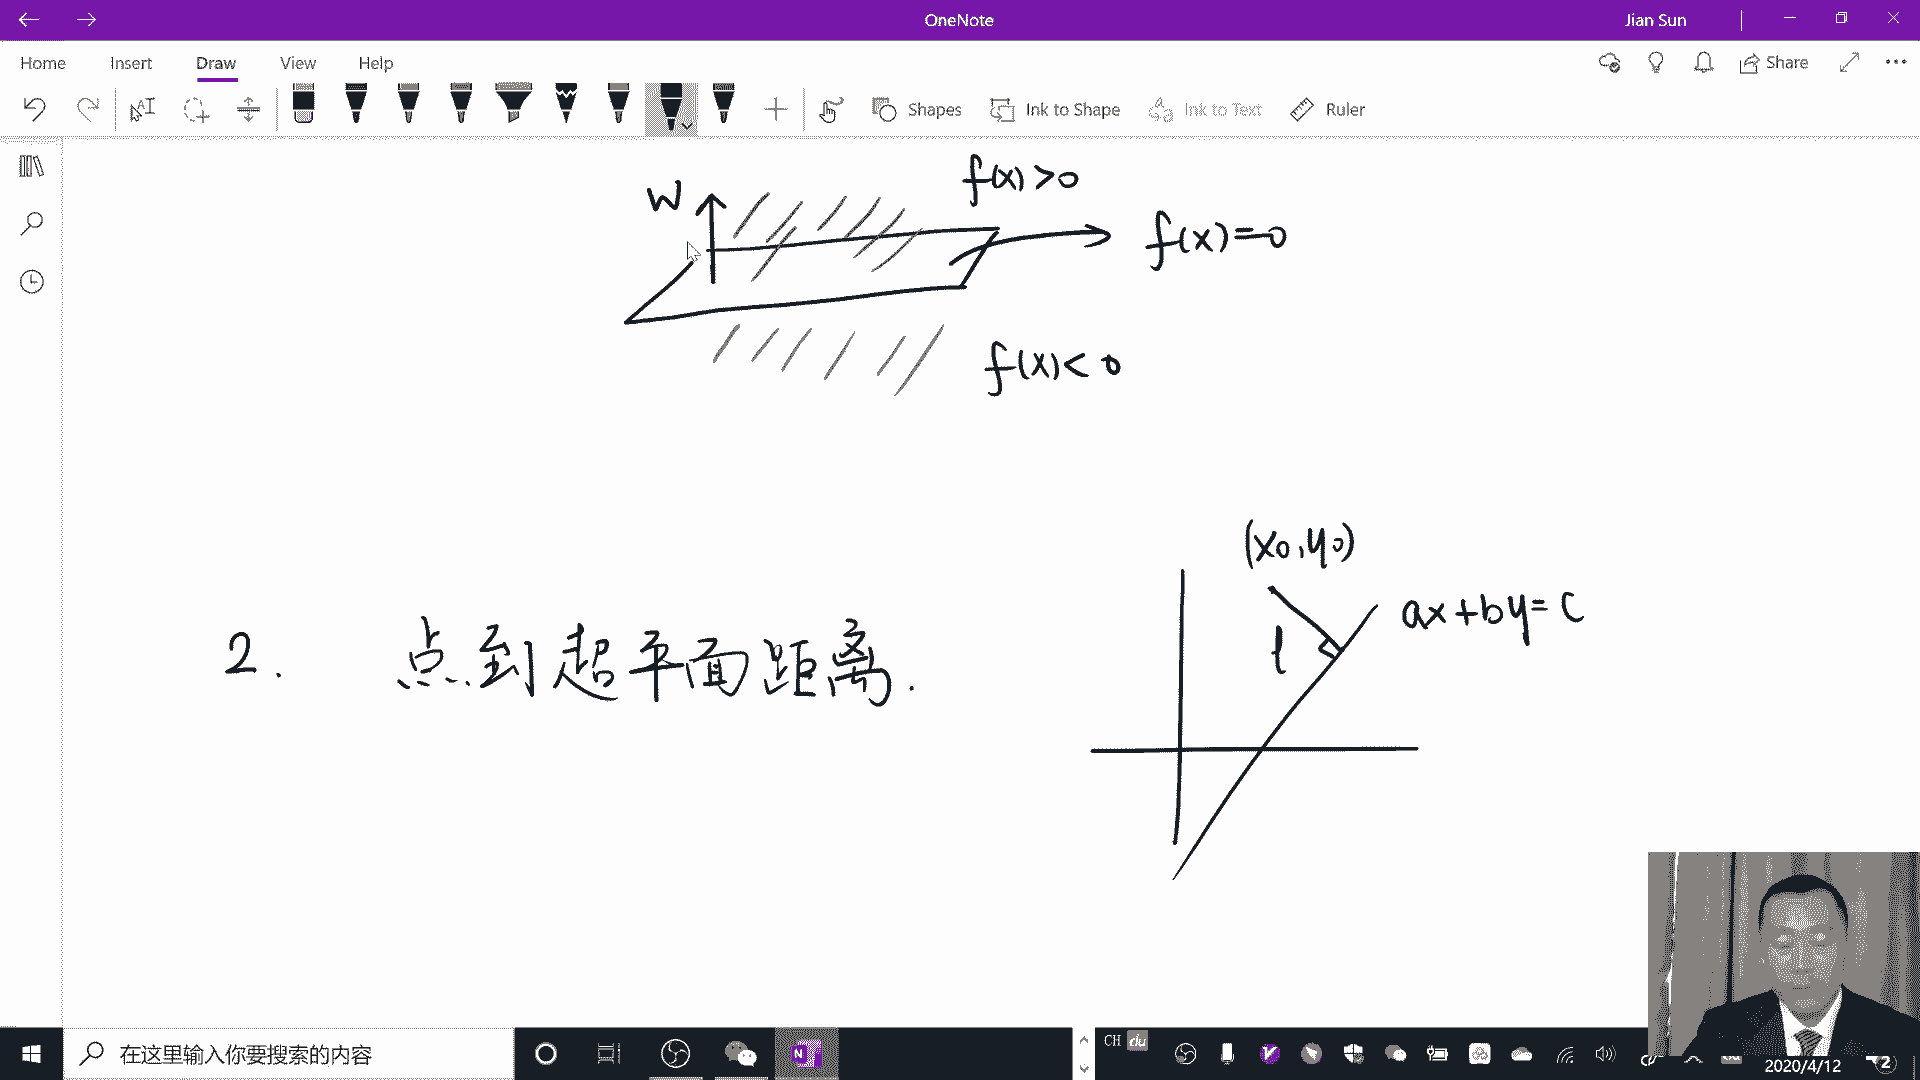 OneNote
Jian Sun
Home Insert Draw View Help
Share
Shapes Ink to Shape Ink to Text Ruler
f(x)>0
W
f(x)=0
f(x)<0
(x0,y0)
ax+by=c
l
2. 点到超平面距离.
在这里输入你要搜索的内容
CH du
N
2020/4/12
2